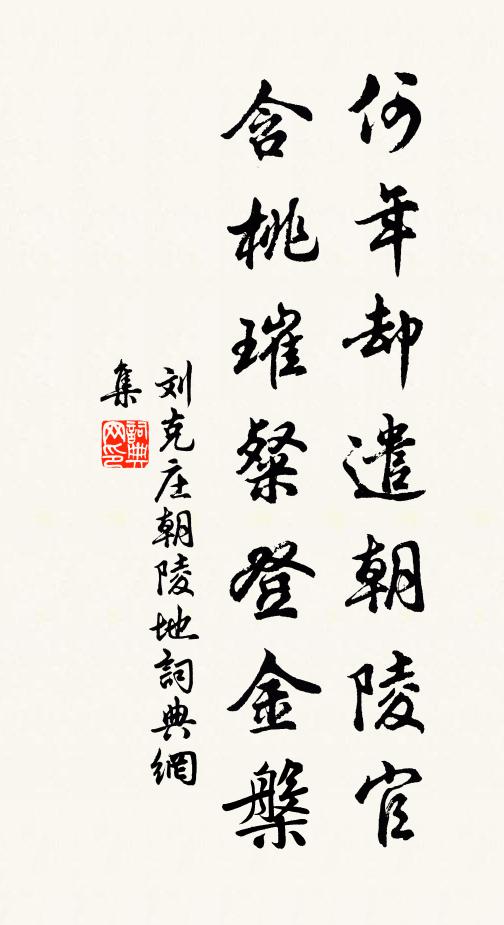 何年却遣朝陵官
含桃璀粲登金槃
刘克庄朝陵地詞典網
集
詞典网印